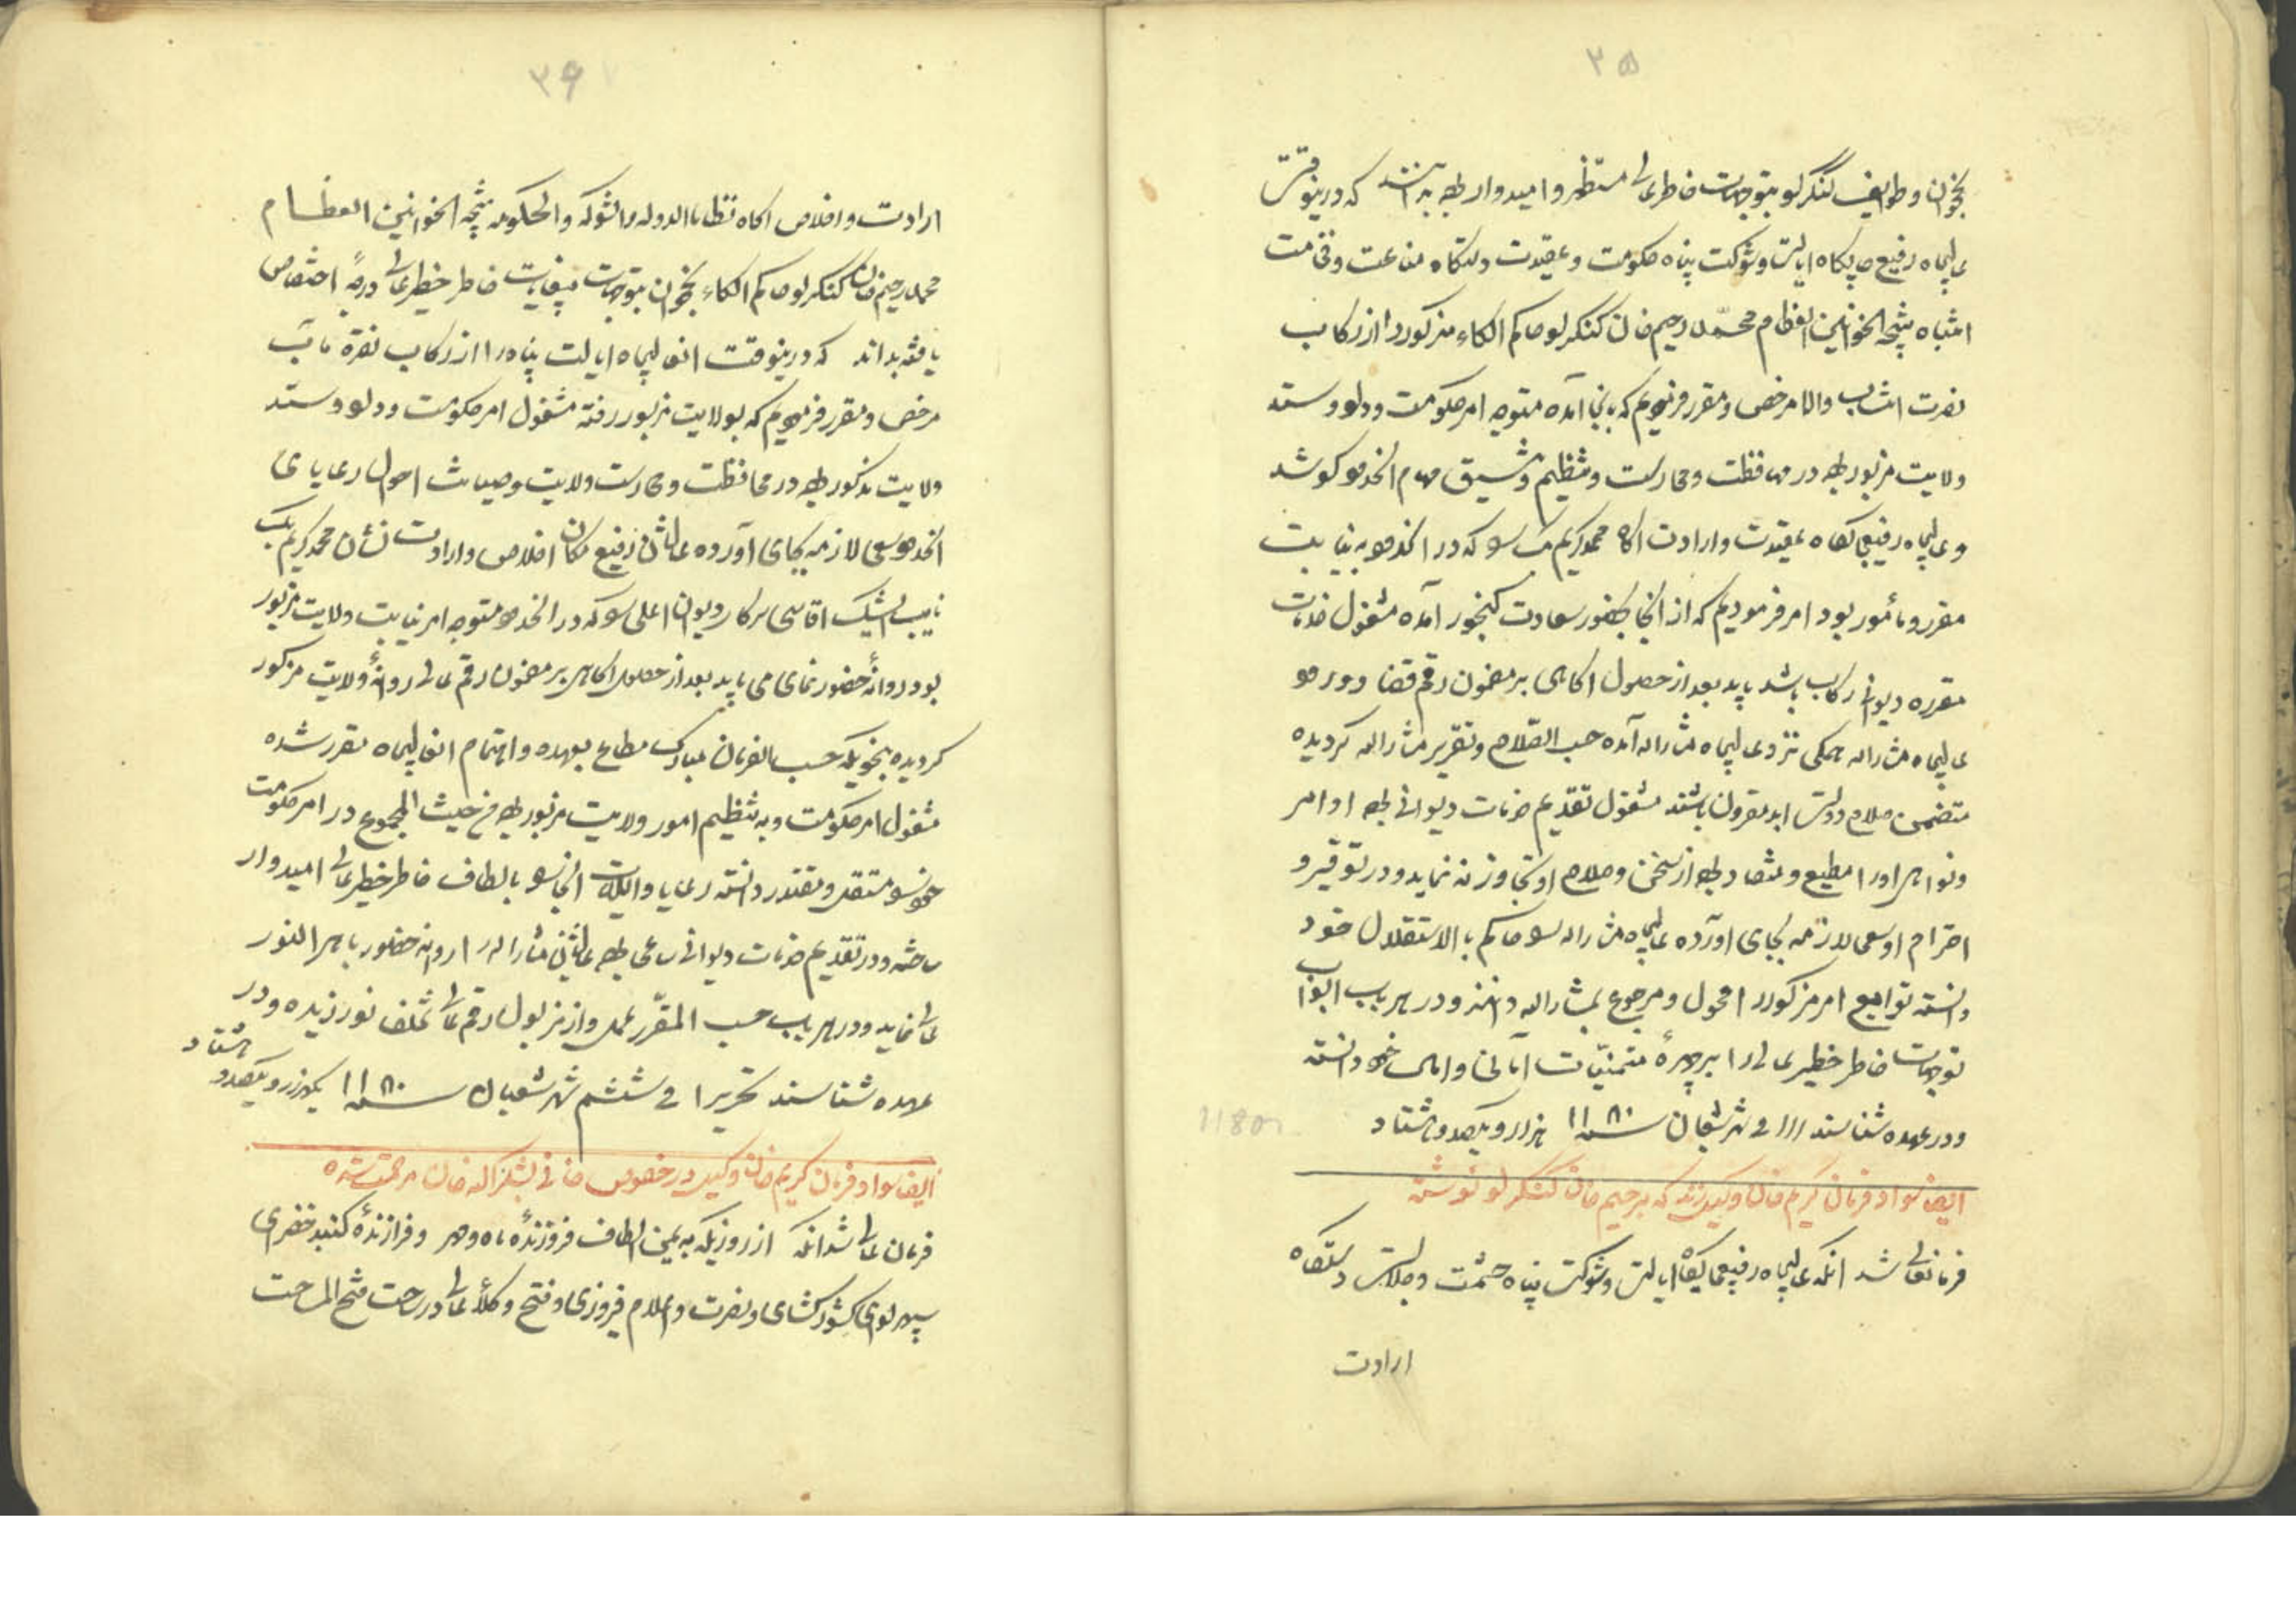 ۳۵
نخجوان و طوایف کنگرلو بتوجهات خاطر عالی مستظهر و امیدوار بوده بدانند که درینوقت
عالیجاه رفیع جایگاه ایالت و شوکت پناه حکومت و عقیدت دستگاه مناعت و فخامت
انتباه نتیجة الخوانین العظام محمد رحیم خان کنگرلو حاکم الکاء مزکور را از رکاب
نصرت انتساب والا مرخص و مقرر فرمودیم که بانجا آمده متوجه امر حکومت و داد و ستد
ولایت مزبور بوده در محافظت و محارست و تنظیم و تنسیق مهام الحدود کوشد
و عالیجاه رفیعجایگاه عقیدت و ارادت اکاه محمد کریم بیک را که در الحدود به نیابت
مقرر و مأمور بود امر فرمودیم که از انجا بحضور سعادت کنجور آمده مشغول خدمات
مقرره دیوانی رکاب باشد باید بعد از حصول اکاهی بر مضمون رقم قضا
عالیجاه مشارالیه همکی نزد عالیجاه مشارالیه آمده حسب الصلاح و تقریر مشارالیه کردیده
متضمن صلاح دولت ابد مقرون باشند مشغول تقدیم خدمات دیوانی بوده اوامر
و نواهی او را مطیع و منقاد بوده از سخن و صلاح او تجاوز نه نماید و در توقیر و
احترام او سعی لازمه بجای اورده عالیجاه مشارالیه را حاکم بالاستقلال خود
دانسته توابع امر مزکور را محول و مرجوع بمشارالیه دانند و در هر باب ابواب
توجهات خاطر خطیر عالی را بر چهرهٔ متمنیات آمانی و امال خود دانسته
و در عهده شناسند فی شهر شعبان سنه ۱۱۸۰ هزار و یکصد و هشتاد
1180
ایضا سواد فرمان کریم خان وکیل زند که برحیم خان کنگرلو نوشته
فرمانعالی شد انکه عالیجاه رفیعجایگاه ایالت و شوکت پناه حشمت و جلالت دستگاه
ارادت
۳۶
ارادت و اخلاص اکاه نظاما الدوله والشوکه والحکومه نتیجة الخوانین العظام
محمد رحیم خان کنگرلو حاکم الکاء نخجوان بتوجهات بیغایات خاطر خطیر عالی درجهٔ اختصاص
یافته بداند که درینوقت انعالیجاه ایالت پناه را از رکاب نصرة مآب
مرخص و مقرر فرمودیم که بولایت مزبور رفته مشغول امر حکومت و داد و ستد
ولایت مذکور بوده در محافظت و محارست ولایت و صیانت احوال رعایای
الحدود سعی لازمه بجای آورده عالیشان رفیع مکان اخلاص و ارادت نشان محمد کریم بیک
نایب ایشیک اقاسی سرکار دیوان اعلی را که در الحدود متوجه امر نیابت ولایت مزبور
بود روانهٔ حضور نمای می باید بعد از حصول اکاهی بر مضمون رقم عالی روانهٔ ولایت مزکور
کردیده بنحویکه حسب الفرمان مبارک مطاع بعهده و اهتمام انعالیجاه مقرر شده
مشغول امر حکومت و به تنظیم امور ولایت مزبور بوده من حیث المجموع در امر حکومت
خود را مستقل و مقتدر دانسته رعایا و ایلات انجا را بالطاف خاطر خطیر عالی امیدوار
ساخته و در تقدیم خدمات دیوانی ساعی بوده عالیشان مشارالیه را روانه حضور باهرالنور
عالی نماید و در هر باب حسب المقرّر عمل و از مزبول رقم عالی تخلف نورزیده و در
عهده شناسند تحریرا فی ششم شهر شعبان سنه ۱۱۸۰ یکهزار و یکصد و هشتاد
ایضا سواد فرمان کریم خان وکیل در خصوص خانی لشکر اله خان مرحمت شده
فرمان عالی شد انکه از روزیکه به یمن الطاف فروزندهٔ ماه و مهر و فرازندهٔ کنبد خضرای
سپهر لوای کشورکشای و نصرت و اعلام فیروزی و فتح وکلأ عالی در ساحت